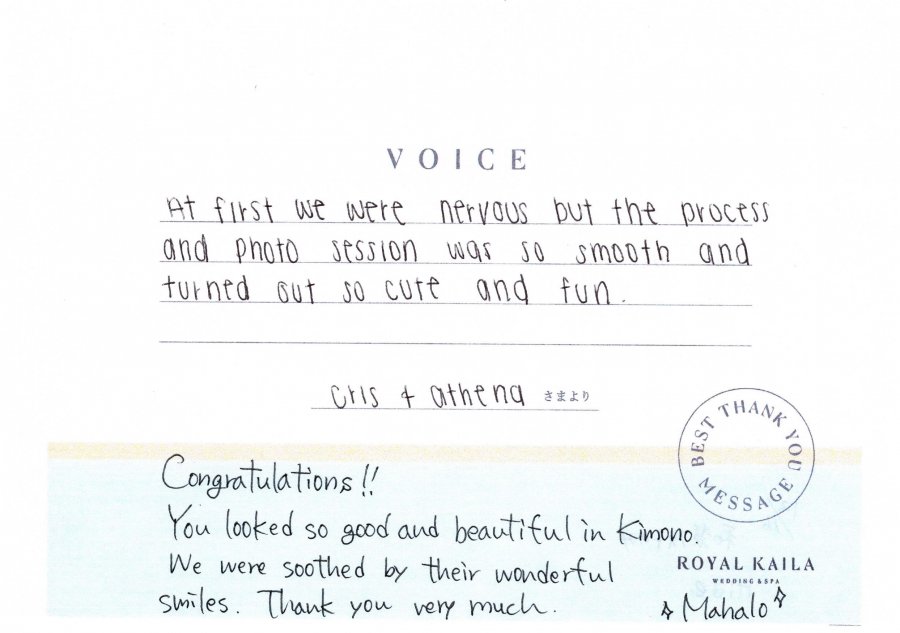 VOICE
At first we were nervous but the process
and photo session was so smooth and
turned out so cute and fun.
cris + athena さまより
BEST THANK YOU MESSAGE
Congratulations!!
You looked so good and beautiful in Kimono.
We were soothed by their wonderful
smiles. Thank you very much.
ROYAL KAILA
WEDDING & SPA
Mahalo